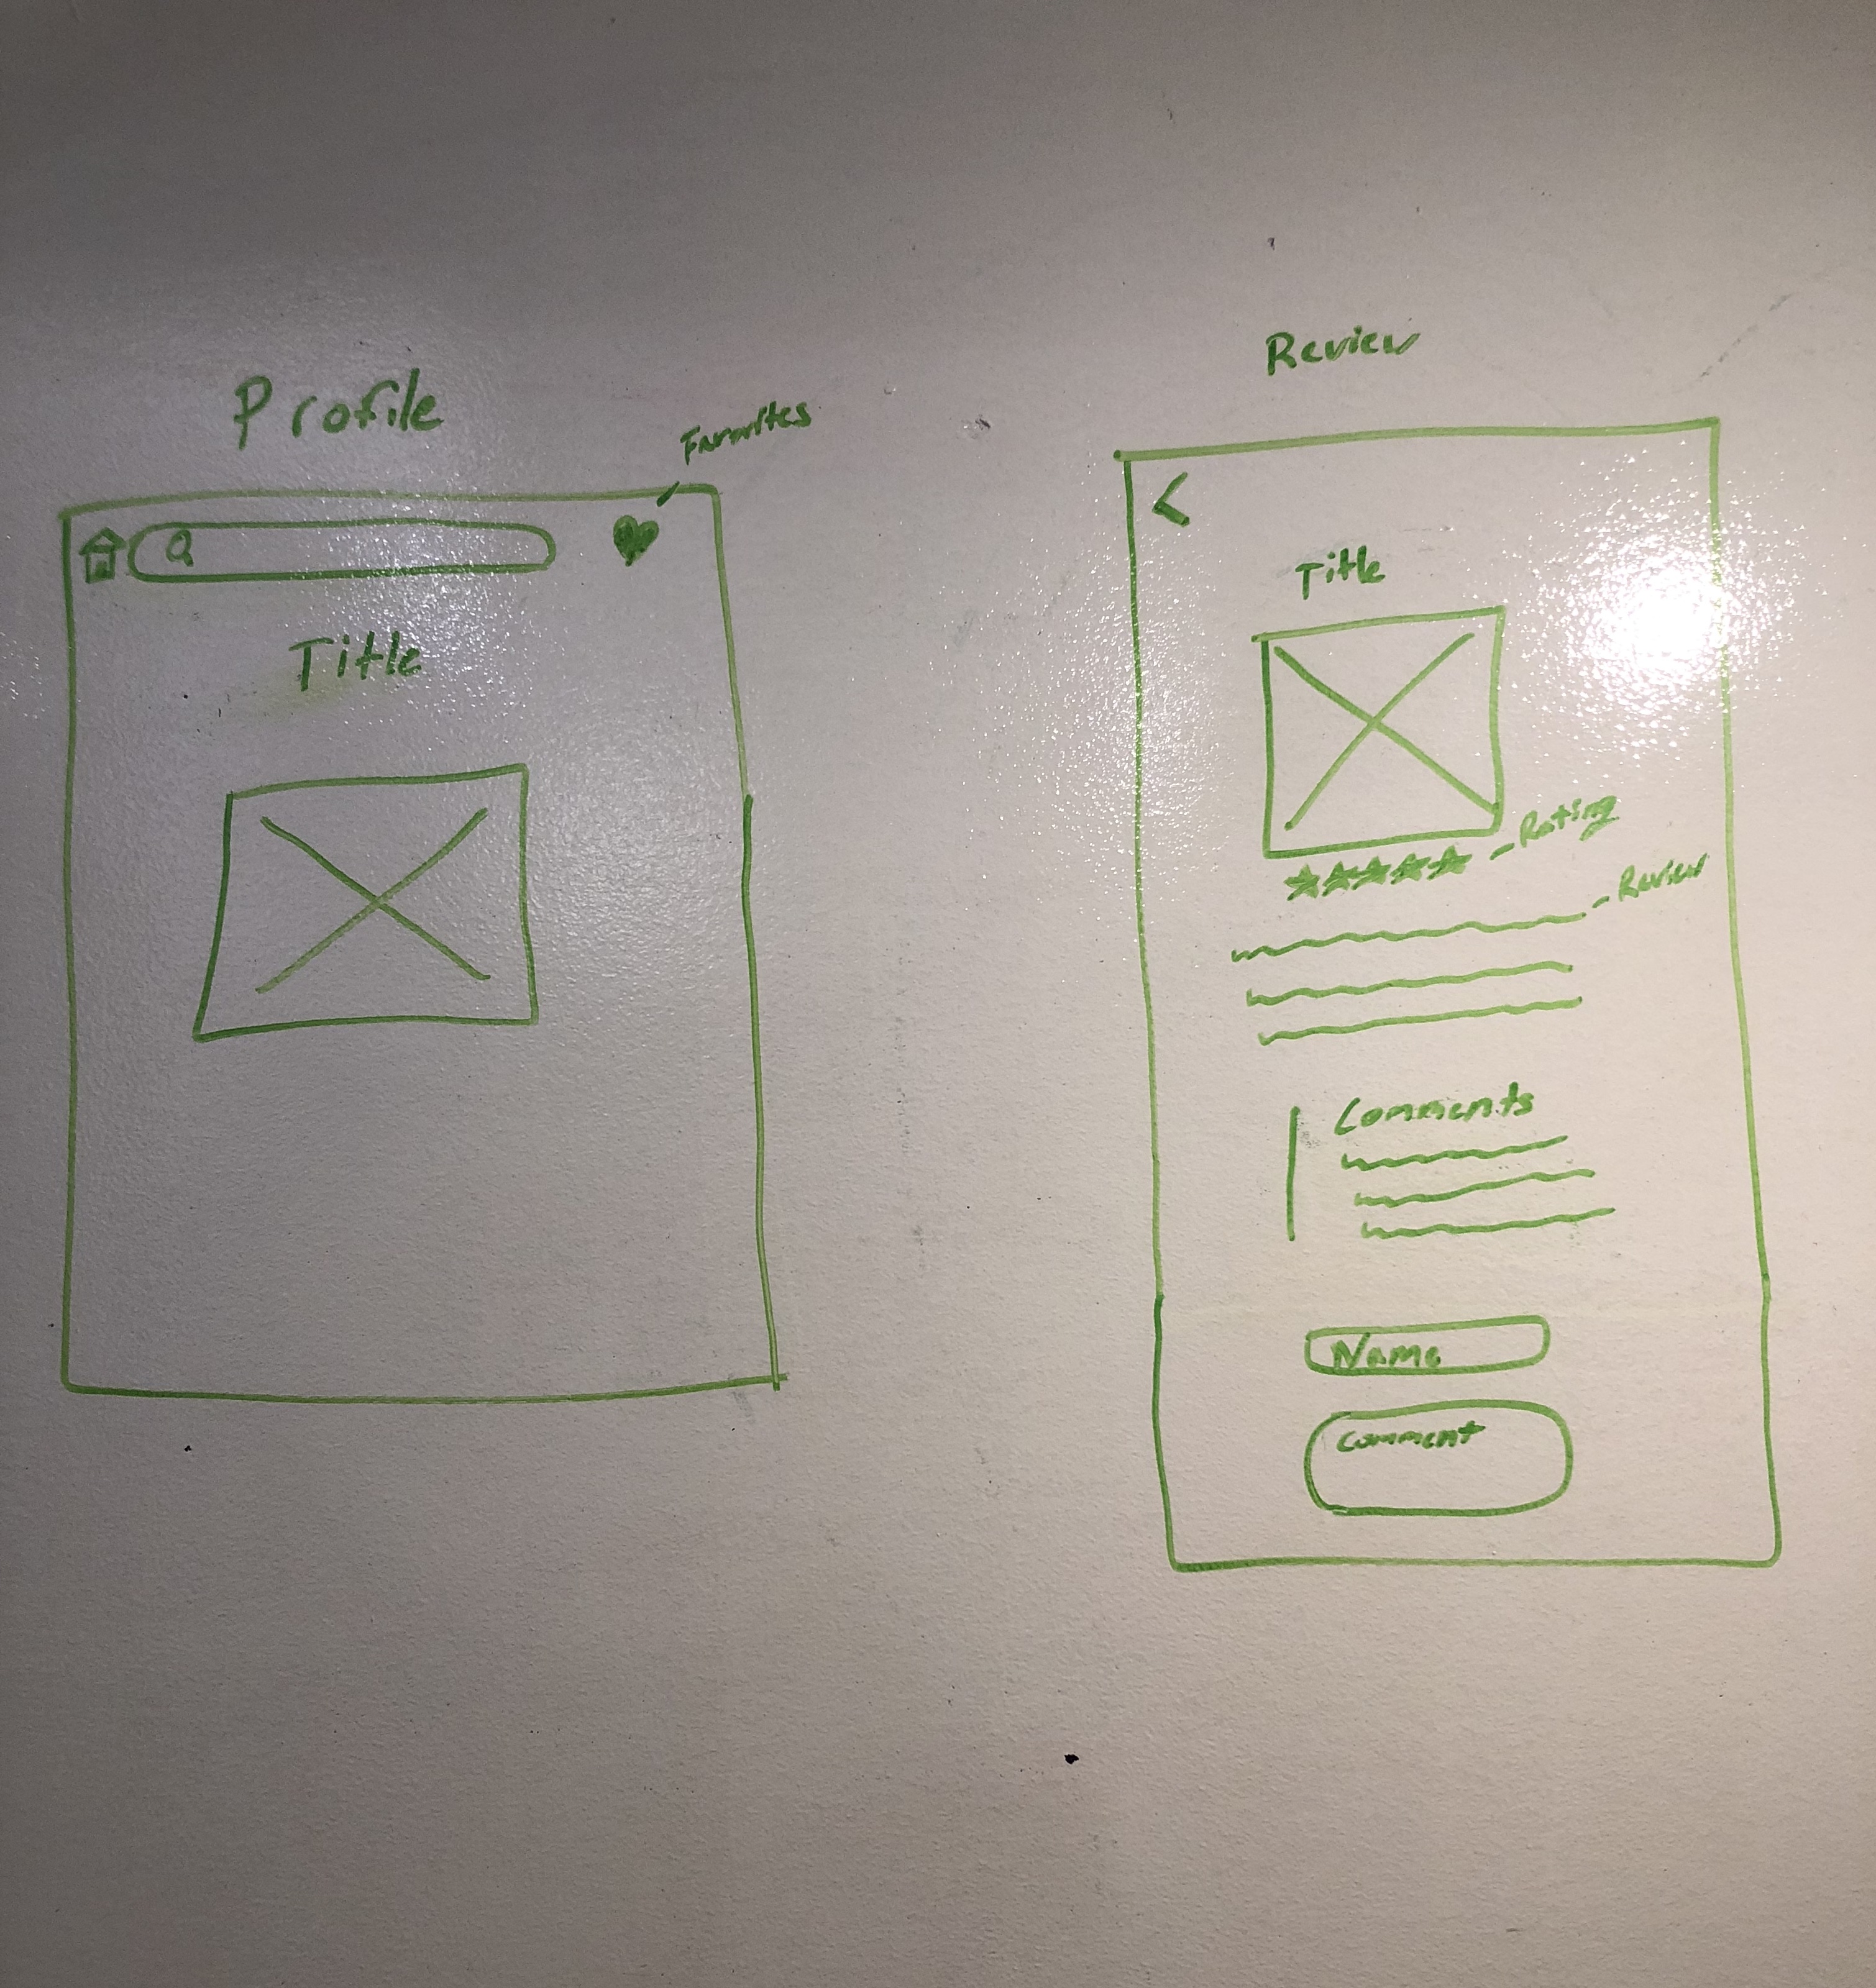 Profile
Favorites
Title
Review
Title
Rating
Review
Comments
Name
Comment